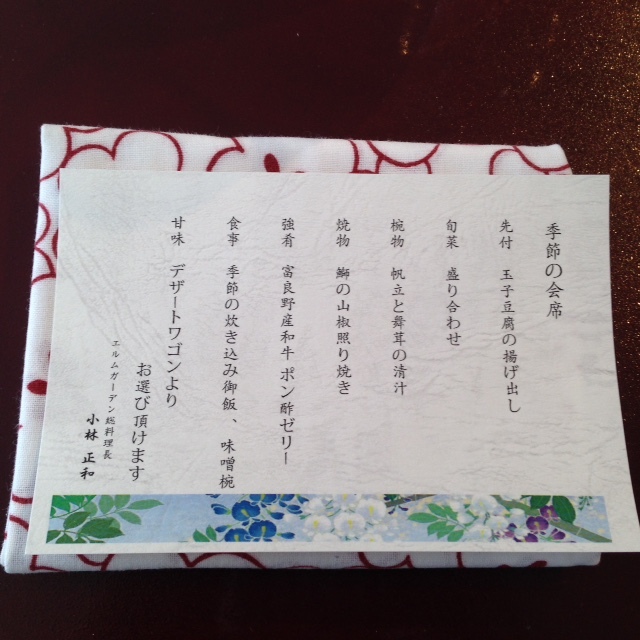 季節の会席
先付 玉子豆腐の揚げ出し
旬菜 盛り合わせ
椀物 帆立と舞茸の清汁
焼物 鰤の山椒照り焼き
強肴 富良野産和牛ポン酢ゼリー
食事 季節の炊き込み御飯、味噌椀
甘味 デザートワゴンより
お選び頂けます
エルムガーデン総料理長
小林 正和